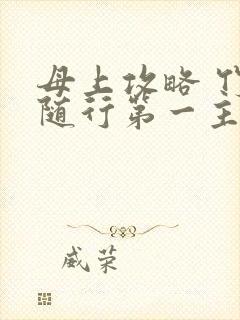 母上攻略
随行第一主
威荣